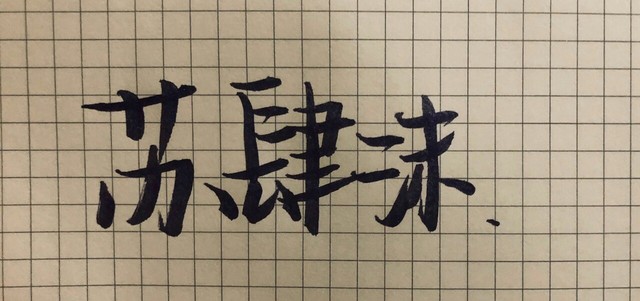 苏肆沫.